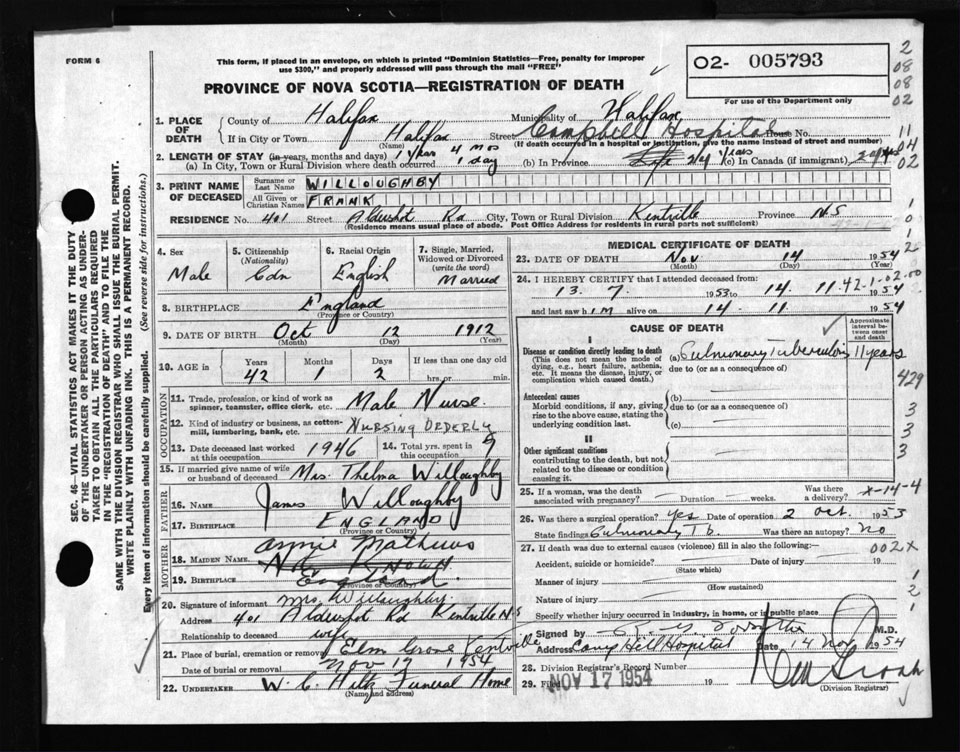 FORM 6
This form, if placed in an envelope, on which is printed "Dominion Statistics—Free, penalty for improper
use $300," and properly addressed will pass through the mail "FREE"
O2- 005793
For use of the Department only
PROVINCE OF NOVA SCOTIA—REGISTRATION OF DEATH
1. PLACE OF DEATH
County of Halifax Municipality of Halifax
If in City or Town Halifax (Name) Street Hospital House No.
(If death occurred in a hospital or institution, give the name instead of street and number)
2. LENGTH OF STAY (in years, months and days) 1 year 4 mos
(a) In City, Town or Rural Division where death occurred 1 day (b) In Province years (c) In Canada (if immigrant)
3. PRINT NAME OF DECEASED
Surname or Last Name WILLOUGHBY
All Given or Christian Names FRANK
RESIDENCE No. 401 Street Aldershot Rd City, Town or Rural Division Kentville Province N.S
(Residence means usual place of abode. Post Office Address for residents in rural parts not sufficient)
4. Sex Male
5. Citizenship (Nationality) Cdn
6. Racial Origin English
7. Single, Married, Widowed or Divorced (write the word) Married
8. BIRTHPLACE England
(Province or Country)
9. DATE OF BIRTH Oct 12 1912
(Month) (Day) (Year)
10. AGE in Years 42 Months 1 Days 2 If less than one day old hrs. or min.
OCCUPATION
11. Trade, profession, or kind of work as spinner, teamster, office clerk, etc. Male Nurse.
12. Kind of industry or business, as cotton-mill, lumbering, bank, etc. NURSING ORDERLY
13. Date deceased last worked at this occupation 1946
14. Total yrs. spent in this occupation 9
15. If married give name of wife or husband of deceased Mrs. Thelma Willoughby
FATHER
16. NAME James Willoughby
17. BIRTHPLACE ENGLAND
(Province or Country)
MOTHER
18. MAIDEN NAME Annie Mathews
19. BIRTHPLACE England.
(Province or Country)
20. Signature of informant Mrs. Willoughby.
Address 401 Aldershot Rd Kentville N.S
Relationship to deceased wife
21. Place of burial, cremation or removal Elm Grove Kentville
Date of burial or removal Nov 17 1954
22. UNDERTAKER W. C. Hiltz Funeral Home
(Name and address)
MEDICAL CERTIFICATE OF DEATH
23. DATE OF DEATH Nov. 14 1954
(Month) (Day) (Year)
24. I HEREBY CERTIFY that I attended deceased from:
13. 7. 1953 to 14. 11. 1954
and last saw him alive on 14. 11. 1954
CAUSE OF DEATH
Approximate interval between onset and death
I
Disease or condition directly leading to death (a) Pulmonary Tuberculosis 11 years
(This does not mean the mode of dying, e.g., heart failure, asthenia, etc. It means the disease, injury, or complication which caused death.)
due to (or as a consequence of)
Antecedent causes
Morbid conditions, if any, giving rise to the above cause, stating the underlying condition last.
(b)
due to (or as a consequence of)
(c)
II
Other significant conditions
contributing to the death, but not related to the disease or condition causing it.
25. If a woman, was the death associated with pregnancy? Duration weeks. Was there a delivery?
26. Was there a surgical operation? Yes Date of operation 2 Oct. 1953
State findings Pulmonary Tb. Was there an autopsy? No
27. If death was due to external causes (violence) fill in also the following:—
Accident, suicide or homicide? Date of injury 19
(State which)
Manner of injury
(How sustained)
Nature of injury
Specify whether injury occurred in industry, in home, or in public place
Signed by M.D.
Address Camp Hill Hospital Date 14 Nov 1954
28. Division Registrar's Record Number
29. Filed NOV 17 1954 19
(Division Registrar)
SEC. 46—VITAL STATISTICS ACT MAKES IT THE DUTY
OF THE UNDERTAKER OR PERSON ACTING AS UNDER-
TAKER TO OBTAIN ALL THE PARTICULARS REQUIRED
IN THE "REGISTRATION OF DEATH" AND TO FILE THE
SAME WITH THE DIVISION REGISTRAR WHO SHALL ISSUE THE BURIAL PERMIT.
WRITE PLAINLY WITH UNFADING INK. THIS IS A PERMANENT RECORD.
Every item of information should be carefully supplied. (See reverse side for instructions.)
2
08
08
02
11
04
02
1
0
1
2
42-1-02.00
429
3
3
3
3
x-14-4
002x
1
2
1